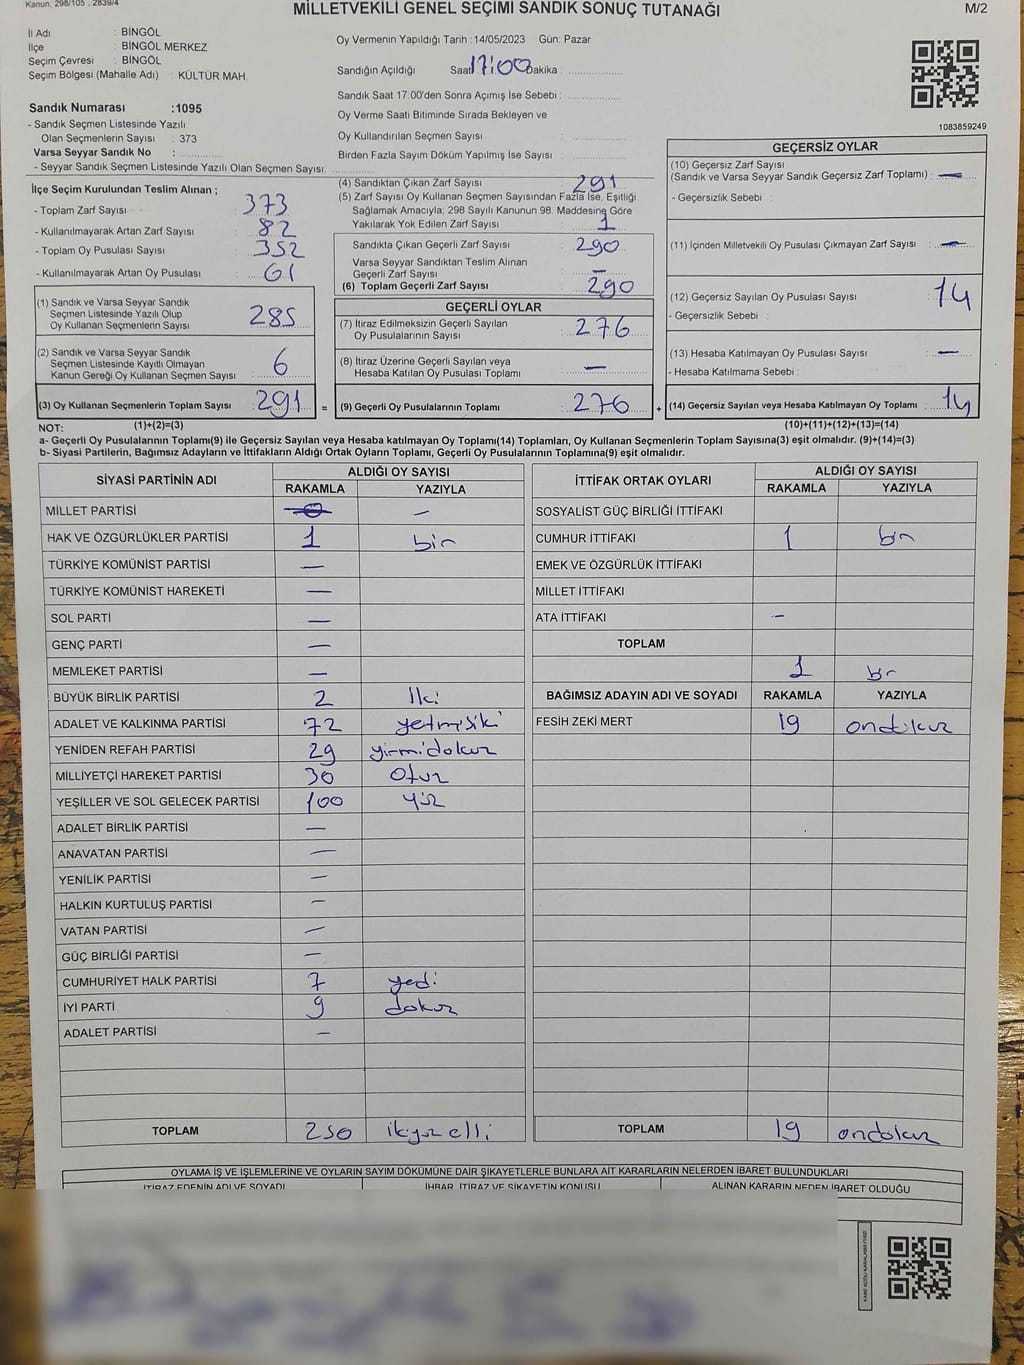 Kanun, 298/105 , 2839/4
MİLLETVEKİLİ GENEL SEÇİMİ SANDIK SONUÇ TUTANAĞI
M/2
İl Adı : BİNGÖL
İlçe : BİNGÖL MERKEZ
Seçim Çevresi : BİNGÖL
Seçim Bölgesi (Mahalle Adı) : KÜLTÜR MAH.
Oy Vermenin Yapıldığı Tarih :14/05/2023 Gün: Pazar
Sandığın Açıldığı Saat 17:00 Dakika :
Sandık Saat 17.00'den Sonra Açımış İse Sebebi :
Oy Verme Saati Bitiminde Sırada Bekleyen ve
Oy Kullandırılan Seçmen Sayısı :
Birden Fazla Sayım Döküm Yapılmış İse Sayısı :
1083859249
Sandık Numarası :1095
- Sandık Seçmen Listesinde Yazılı
Olan Seçmenlerin Sayısı : 373
Varsa Seyyar Sandık No :
- Seyyar Sandık Seçmen Listesinde Yazılı Olan Seçmen Sayısı:
İlçe Seçim Kurulundan Teslim Alınan ;
- Toplam Zarf Sayısı : 373
- Kullanılmayarak Artan Zarf Sayısı : 82
- Toplam Oy Pusulası Sayısı : 352
- Kullanılmayarak Artan Oy Pusulası : 61
(1) Sandık ve Varsa Seyyar Sandık
Seçmen Listesinde Yazılı Olup
Oy Kullanan Seçmenlerin Sayısı : 285
(2) Sandık ve Varsa Seyyar Sandık
Seçmen Listesinde Kayıtlı Olmayan
Kanun Gereği Oy Kullanan Seçmen Sayısı : 6
(3) Oy Kullanan Seçmenlerin Toplam Sayısı : 291 =
(1)+(2)=(3)
(4) Sandıktan Çıkan Zarf Sayısı : 291
(5) Zarf Sayısı Oy Kullanan Seçmen Sayısından Fazla İse, Eşitliği
Sağlamak Amacıyla; 298 Sayılı Kanunun 98. Maddesine Göre
Yakılarak Yok Edilen Zarf Sayısı : 1
Sandıkta Çıkan Geçerli Zarf Sayısı : 290
Varsa Seyyar Sandıktan Teslim Alınan
Geçerli Zarf Sayısı : —
(6) Toplam Geçerli Zarf Sayısı : 290
GEÇERLİ OYLAR
(7) İtiraz Edilmeksizin Geçerli Sayılan
Oy Pusulalarının Sayısı : 276
(8) İtiraz Üzerine Geçerli Sayılan veya
Hesaba Katılan Oy Pusulası Toplamı : —
(9) Geçerli Oy Pusulalarının Toplamı : 276 +
GEÇERSİZ OYLAR
(10) Geçersiz Zarf Sayısı
(Sandık ve Varsa Seyyar Sandık Geçersiz Zarf Toplamı) : —
- Geçersizlik Sebebi :
(11) İçinden Milletvekili Oy Pusulası Çıkmayan Zarf Sayısı : —
(12) Geçersiz Sayılan Oy Pusulası Sayısı : 14
- Geçersizlik Sebebi :
(13) Hesaba Katılmayan Oy Pusulası Sayısı : —
- Hesaba Katılmama Sebebi :
(14) Geçersiz Sayılan veya Hesaba Katılmayan Oy Toplamı : 14
(10)+(11)+(12)+(13)=(14)
NOT:
a- Geçerli Oy Pusulalarının Toplamı(9) ile Geçersiz Sayılan veya Hesaba katılmayan Oy Toplamı(14) Toplamları, Oy Kullanan Seçmenlerin Toplam Sayısına(3) eşit olmalıdır. (9)+(14)=(3)
b- Siyasi Partilerin, Bağımsız Adayların ve İttifakların Aldığı Ortak Oyların Toplamı, Geçerli Oy Pusulalarının Toplamına(9) eşit olmalıdır.
SİYASİ PARTİNİN ADI ALDIĞI OY SAYISI
RAKAMLA YAZIYLA
MİLLET PARTİSİ —
HAK VE ÖZGÜRLÜKLER PARTİSİ 1 bir
TÜRKİYE KOMÜNİST PARTİSİ —
TÜRKİYE KOMÜNİST HAREKETİ —
SOL PARTİ —
GENÇ PARTİ —
MEMLEKET PARTİSİ —
BÜYÜK BİRLİK PARTİSİ 2 İki
ADALET VE KALKINMA PARTİSİ 72 yetmişiki
YENİDEN REFAH PARTİSİ 29 yirmidokuz
MİLLİYETÇİ HAREKET PARTİSİ 30 Otuz
YEŞİLLER VE SOL GELECEK PARTİSİ 100 yüz
ADALET BİRLİK PARTİSİ —
ANAVATAN PARTİSİ —
YENİLİK PARTİSİ —
HALKIN KURTULUŞ PARTİSİ —
VATAN PARTİSİ —
GÜÇ BİRLİĞİ PARTİSİ —
CUMHURİYET HALK PARTİSİ 7 yedi
İYİ PARTİ 9 dokuz
ADALET PARTİSİ —
TOPLAM 250 ikiyüz elli
İTTİFAK ORTAK OYLARI ALDIĞI OY SAYISI
RAKAMLA YAZIYLA
SOSYALİST GÜÇ BİRLİĞİ İTTİFAKI
CUMHUR İTTİFAKI 1 bir
EMEK VE ÖZGÜRLÜK İTTİFAKI
MİLLET İTTİFAKI
ATA İTTİFAKI –
TOPLAM
1 bir
BAĞIMSIZ ADAYIN ADI VE SOYADI RAKAMLA YAZIYLA
FESİH ZEKİ MERT 19 ondokuz
TOPLAM 19 ondokuz
OYLAMA İŞ VE İŞLEMLERİNE VE OYLARIN SAYIM DÖKÜMÜNE DAİR ŞİKAYETLERLE BUNLARA AİT KARARLARIN NELERDEN İBARET BULUNDUKLARI
İTİRAZ EDENİN ADI VE SOYADI İHBAR, İTİRAZ VE ŞİKAYETİN KONUSU ALINAN KARARIN NEDEN İBARET OLDUĞU